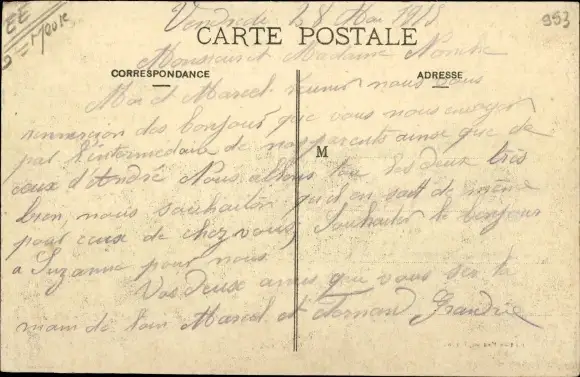 EE
953
Vendredi 28 Mai 1915
CARTE POSTALE
Monsieur et Madame
CORRESPONDANCE
ADRESSE
Moi et Marcel réunir nous vous
remercion des bonjour que vous nous envoyer
par l'intermédiaire de nos parents ainsi que de
M
ceux d'André Nous allons tou les deux très
bien, nous souhaiton qu'il en soit de même
pour ceux de chez vous, Souhaiter le bonjour
a Suzanne pour nous
Vos deux amis que vous ser la
main de loin Marcel et Fernand